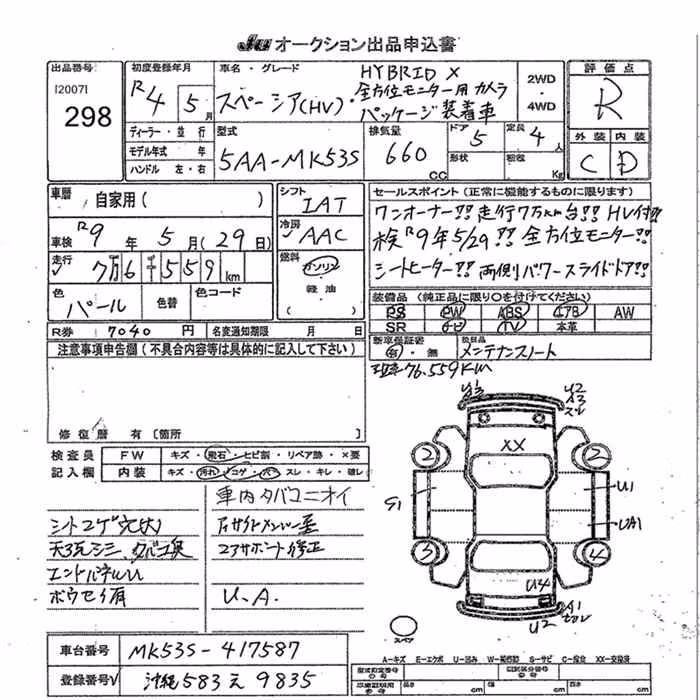 JU オークション出品申込書
出品番号
[2007]
298
初度登録年月
R4 5月
車名・グレード
スペーシア(HV)・
HYBRID X
全方位モニター用カメラ
パッケージ装着車
2WD
・
4WD
評価点
R
外装 内装
C D
ディーラー・並行
モデル年式 年
ハンドル 左・右
型式
5AA-MK53S
排気量
660 CC
ドア
5
形状
定員
4人
積載
Kg
車歴
自家用( )
車検 R9年 5月(29日)
走行 7万6千559km
色
パール
色替
色コード
R券 7040円 名変通知期限 月 日
シフト
IAT
冷房
AAC
燃料
ガソリン
軽油
( )
セールスポイント(正常に機能するものに限ります)
ワンオーナー!! 走行7万km台!! HV付!!
検R9年5/29!! 全方位モニター!!
シートヒーター!! 両側パワースライドドア!!
装備品(純正品に限り○を付けてください)
PS PW ABS エアB AW
SR ナビ TV 本革
新車保証書
有・無
後日品
メンテナンスノート
76.559KM
注意事項申告欄(不具合内容等は具体的に記入して下さい)
修復歴 有[箇所
検査員
記入欄
FW キズ・飛石・ヒビ割・リペア跡・×要
内装 キズ・汚れ・コゲ・穴・スレ・キレ・破レ
車内タバコニオイ
シートコゲ穴
エンドパネルU
ボウセイ有
コアサポート修正
U、A
車台番号 MK53S-417587
登録番号 沖縄 583 え 9835
A3
U2
A3
スレ
XX
2
2
G1
U1
UA1
3
4
U4
A1
U2
スペア
A-キズ E-エクボ U-凹み W-補修跡 S-サビ C-腐食 XX-交換済
長さ cm 幅 cm 高さ cm